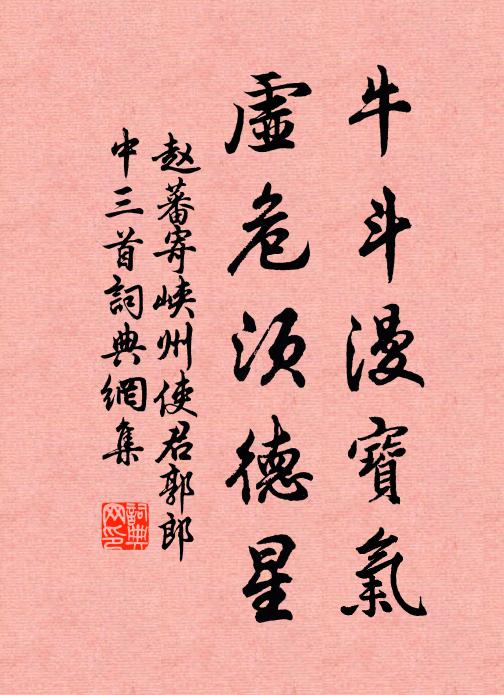 牛斗漫寶氣
虛危須德星
赵蕃寄峽州使君郭郎
中三首詞典網集
詞典
网印